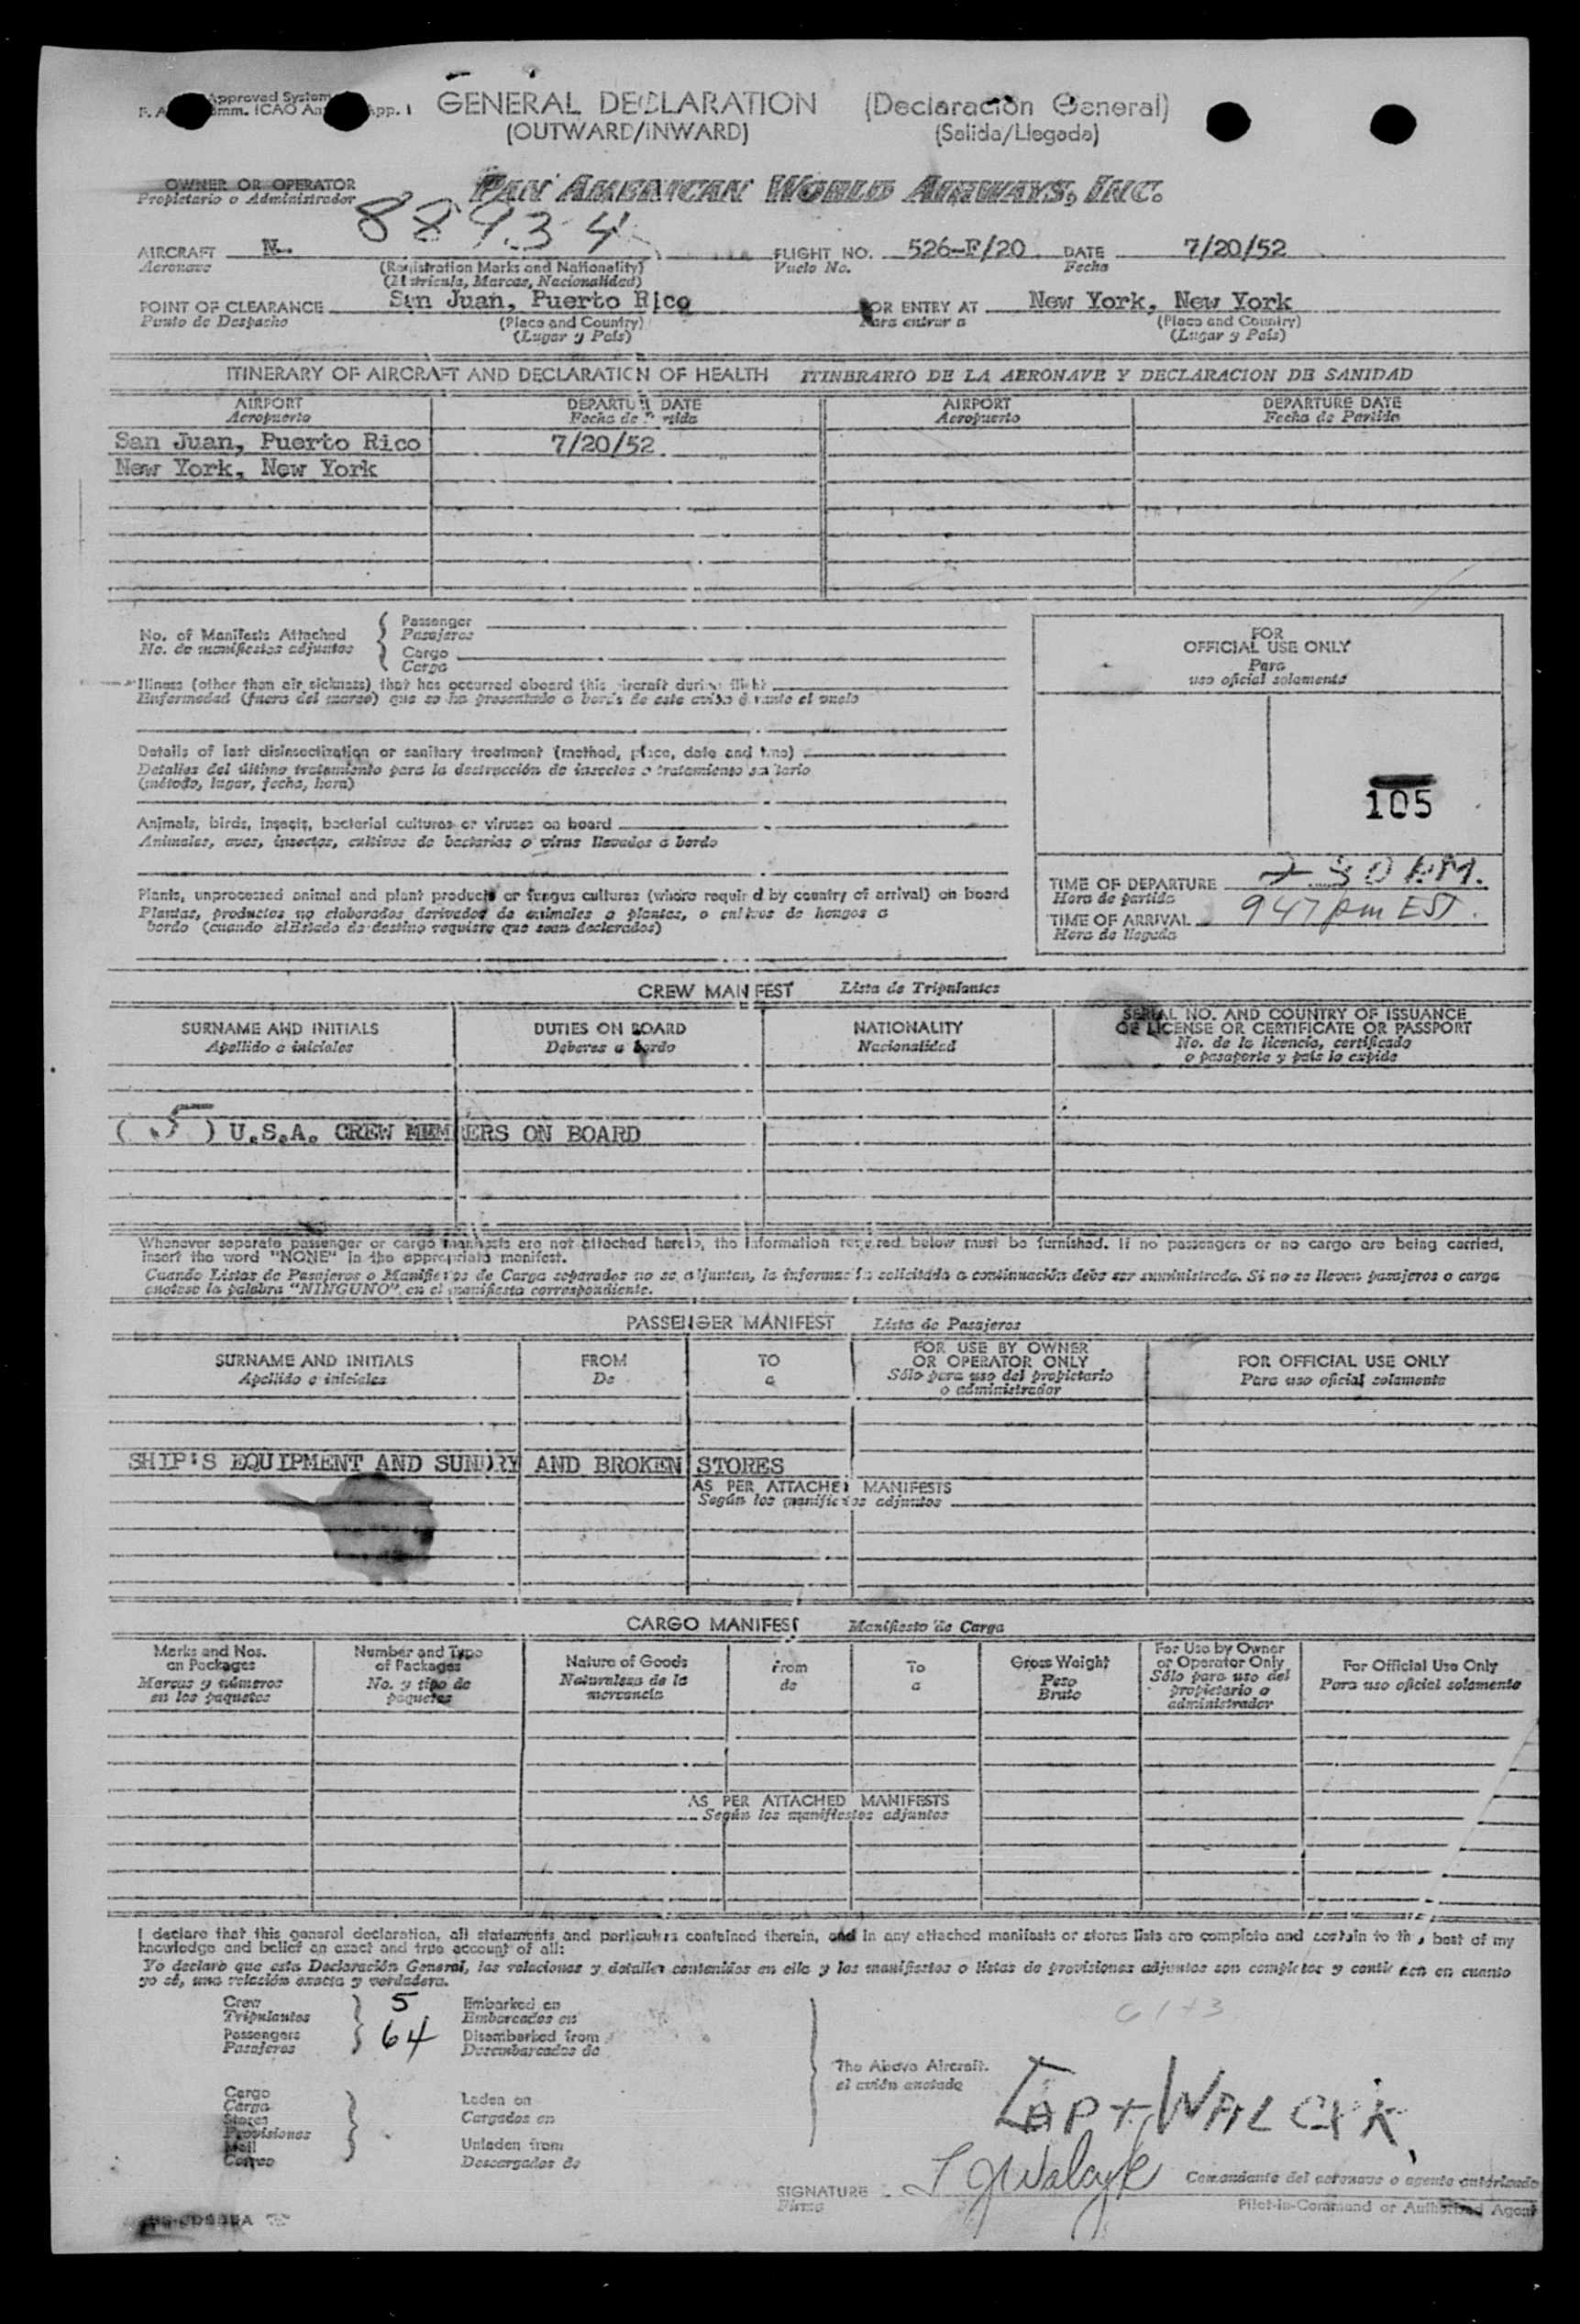 Approved System
App. 1
GENERAL DECLARATION (Declaración General)
(OUTWARD/INWARD) (Salida/Llegada)
OWNER OR OPERATOR PAN AMERICAN WORLD AIRWAYS, INC.
Propietario o Administrador
AIRCRAFT N 88934 FLIGHT NO. 526-F/20 DATE 7/20/52
Aeronave (Registration Marks and Nationality) Vuelo No. Fecha
(Matrícula, Marcas, Nacionalidad)
POINT OF CLEARANCE San Juan, Puerto Rico FOR ENTRY AT New York, New York
Punto de Despacho (Place and Country) Para entrar a (Place and Country)
(Lugar y País) (Lugar y País)
ITINERARY OF AIRCRAFT AND DECLARATION OF HEALTH ITINERARIO DE LA AERONAVE Y DECLARACION DE SANIDAD
AIRPORT DEPARTURE DATE AIRPORT DEPARTURE DATE
Aeropuerto Fecha de Partida Aeropuerto Fecha de Partida
San Juan, Puerto Rico 7/20/52
New York, New York
No. of Manifests Attached Passenger
No. de manifiestos adjuntos Pasajeros
Cargo
Carga
FOR
OFFICIAL USE ONLY
Para
uso oficial solamente
Illness (other than air sickness) that has occurred aboard this aircraft during flight
Enfermedad (fuera del mareo) que se ha presentado a bordo de este avión durante el vuelo
Details of last disinsectization or sanitary treatment (method, place, date and time)
Detalles del último tratamiento para la destrucción de insectos o tratamiento sanitario
(método, lugar, fecha, hora)
105
Animals, birds, insects, bacterial cultures or viruses on board
Animales, aves, insectos, cultivos de bacterias o virus llevados a bordo
Plants, unprocessed animal and plant products or fungus cultures (where required by country of arrival) on board
Plantas, productos no elaborados derivados de animales o plantas, o cultivos de hongos a
bordo (cuando el Estado de destino requiere que sean declarados)
TIME OF DEPARTURE 230 P.M.
Hora de partida
TIME OF ARRIVAL 947 pm EST.
Hora de llegada
CREW MANIFEST Lista de Tripulantes
SURNAME AND INITIALS DUTIES ON BOARD NATIONALITY SERIAL NO. AND COUNTRY OF ISSUANCE
OF LICENSE OR CERTIFICATE OR PASSPORT
Apellido e iniciales Deberes a bordo Nacionalidad No. de la licencia, certificado
o pasaporte y país lo expide
( 5 ) U.S.A. CREW MEMBERS ON BOARD
Whenever separate passenger or cargo manifests are not attached hereto, the information required below must be furnished. If no passengers or no cargo are being carried,
insert the word "NONE" in the appropriate manifest.
Cuando Listas de Pasajeros o Manifiestos de Carga separados no se adjuntan, la información solicitada a continuación debe ser suministrada. Si no se llevan pasajeros o carga
anótese la palabra "NINGUNO" en el manifiesto correspondiente.
PASSENGER MANIFEST Lista de Pasajeros
SURNAME AND INITIALS FROM TO FOR USE BY OWNER
OR OPERATOR ONLY FOR OFFICIAL USE ONLY
Apellido e iniciales De a Sólo para uso del propietario
o administrador Para uso oficial solamente
SHIP'S EQUIPMENT AND SUNDRY AND BROKEN STORES
AS PER ATTACHED MANIFESTS
Según los manifiestos adjuntos
CARGO MANIFEST Manifiesto de Carga
Marks and Nos.
on Packages
Marcas y números
en los paquetes
Number and Type
of Packages
No. y tipo de
paquetes
Nature of Goods
Naturaleza de la
mercancía
From
de
To
a
Gross Weight
Peso
Bruto
For Use by Owner
or Operator Only
Sólo para uso del
propietario o
administrador
For Official Use Only
Para uso oficial solamente
AS PER ATTACHED MANIFESTS
Según los manifiestos adjuntos
I declare that this general declaration, all statements and particulars contained therein, and in any attached manifests or stores lists are complete and contain to the best of my
knowledge and belief an exact and true account of all:
Yo declaro que esta Declaración General, las relaciones y detalles contenidos en ella y los manifiestos o listas de provisiones adjuntos son completos y contienen en cuanto
yo sé, una relación exacta y verdadera.
Crew 5 Embarked on
Tripulantes Embarcados en
Passengers 64 Disembarked from
Pasajeros Desembarcados de
61+3
The Above Aircraft.
el avión anotado
Cargo
Carga
Stores
Provisiones
Mail
Correo
Laden on
Cargados en
Unladen from
Descargados de
CAPT WALCYK
SIGNATURE
Firma
Comandante del aeronave o agente autorizado
Pilot-in-Command or Authorized Agent